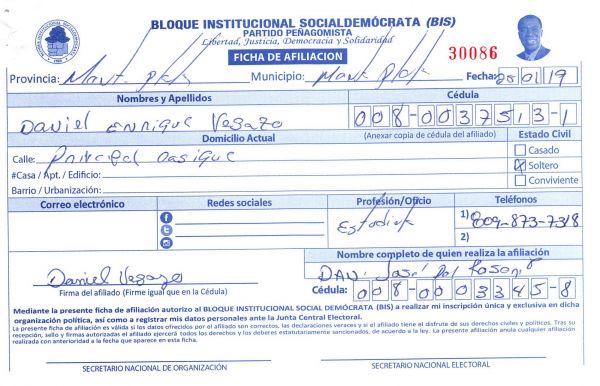 BLOQUE INSTITUCIONAL SOCIALDEMÓCRATA (BIS)
PARTIDO PEÑAGOMISTA
Libertad, Justicia, Democracia y Solidaridad
FICHA DE AFILIACION
30086
Provincia: Mont. Plata Municipio: Mont Plata Fecha: 25 01 19
Nombres y Apellidos
Cédula
Daniel Enrique Vegazo
008-0037513-1
Domicilio Actual
(Anexar copia de cédula del afiliado)
Estado Civil
Calle: Principal
#Casa / Apt. / Edificio:
Barrio / Urbanización:
Casado
Soltero
Conviviente
Correo electrónico
Redes sociales
Profesión/Oficio
Teléfonos
1) 809-873-7318
2)
Nombre completo de quien realiza la afiliación
José Del Rosario
Daniel Vegazo
Firma del afiliado (Firme igual que en la Cédula)
Cédula: 008-0003345-8
Mediante la presente ficha de afiliación autorizo al BLOQUE INSTITUCIONAL SOCIAL DEMÓCRATA (BIS) a realizar mi inscripción única y exclusiva en dicha
organización política, así como a registrar mis datos personales ante la Junta Central Electoral.
La presente ficha de afiliación es válida si los datos ofrecidos por el afiliado son correctos, las declaraciones veraces y si el afiliado tiene el disfrute de sus derechos civiles y políticos. Tras su
recepción, sello y firmas autorizadas el afiliado ejercerá todos los derechos y los deberes estatutariamente sancionados, de acuerdo a la ley. La presente afiliación anula cualquier afiliación
realizada con anterioridad a la fecha que aparece en esta ficha.
SECRETARIO NACIONAL DE ORGANIZACIÓN
SECRETARIO NACIONAL ELECTORAL